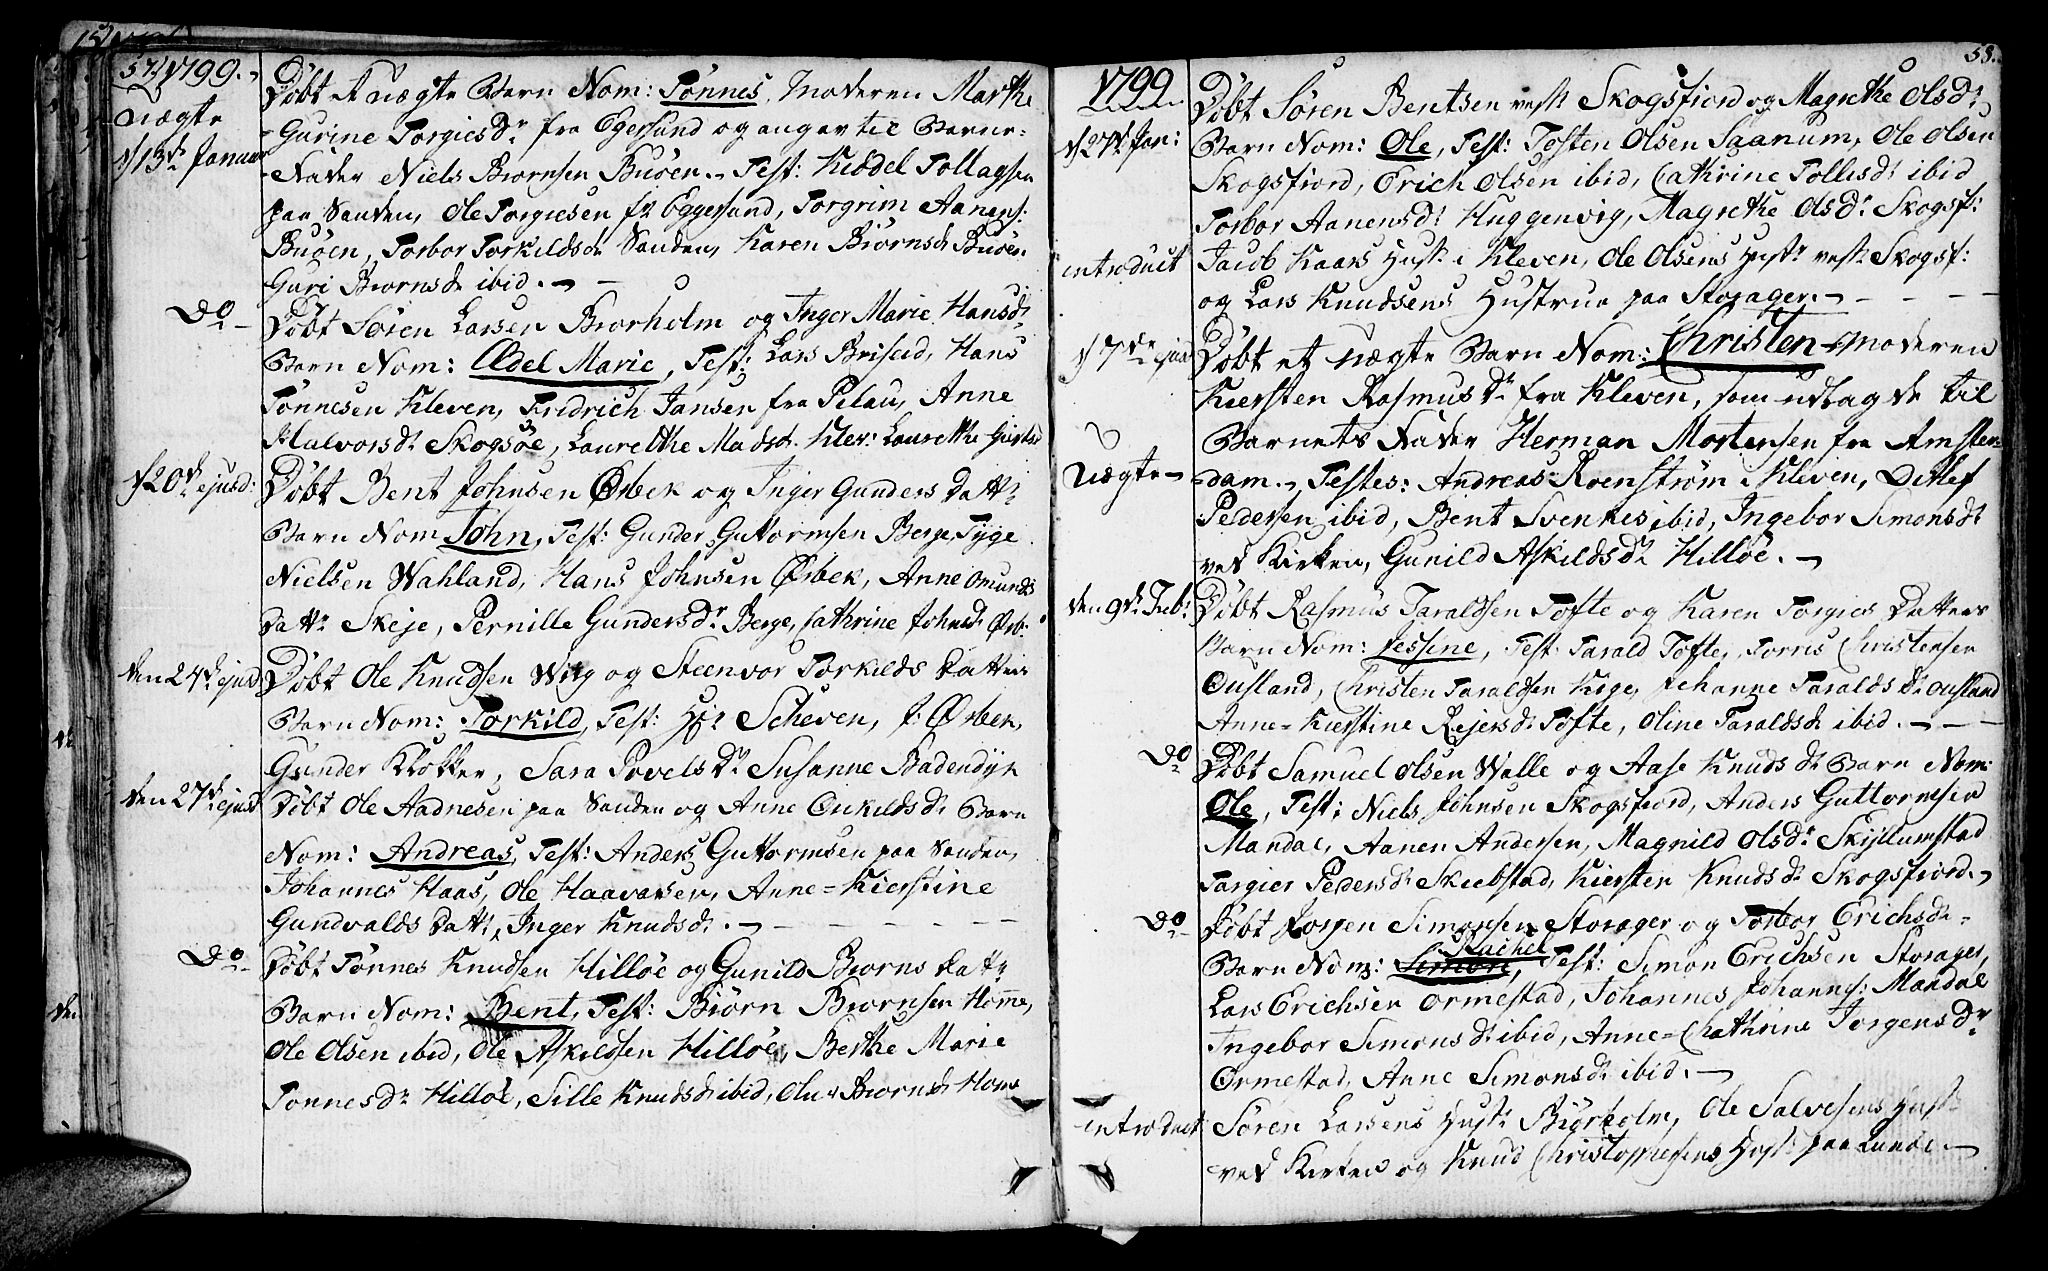 57. 1799.
uægte
d 13de Januar
Døbt et uægte Barn Nom: Tønnes, Moderen Marthe
Gurine Torgiesdr fra Egersund og angav til Barne-
Fader Niels Biørnsen Buøen. Test: Kiddel Tollagsen
paa Sanden, Ole Torgiesen fr Eggersund, Torgrim Aanens:
Buøen, Torbor Torkildsdr Sanden, Karen Biørnsdr Buøen
Guri Biørnsdr ibid.
Do
Døbt Søren Larsen Biørholm og Inger Marie Hansdr
Barn Nom: Ædel Marie, Test: Lars Briseid, Hans
Tønnesen Kleven, Fridrich Jansen fra Pelau, Anne
Halvorsdr Skogsøe, Laurethe Madsdr Klev: Laurethe
d 20de ejusd:
Døbt Bent Johnsen Ørbek og Inger Gunders Dattr
Barn Nom John, Test: Gunder Guttormsen Berge, Tyge
Nielsen Wahland, Hans Johnsen Ørbek, Anne Omunds
Dattr Skeje, Pernille Gundersdr Berge, Cathrine Johnsdr Ørb:
den 24de ejusd
Døbt Ole Knudsen Wiig og Steenvor Torkilds Datters
Barn Nom: Torkild, Test: Hr Scheven, J: Ørbek,
Gunder Klokker, Sara Povelsdr Susanne Badendijk
den 27de ejusd
Døbt Ole Aadnesen paa Sanden og Anne Onkildsdr Barn
Nom: Andreas, Test: Anders Guttormsen paa Sanden,
Johannes Haas, Ole Haavarsen, Anne-Kierstine
Gundvalds Dattr, Inger Knudsdr.
Do
Døbt Tønnes Knudsen Hilløe og Gunild Biørns Dattr
Barn Nom: Bent, Test: Biørn Biørnsen Homme,
Ole Olsen ibid, Ole Askildsen Hilløe, Berthe Marie
Tønnesdr Hilløe, Sille Knudsdr ibid, Biørnsdr Home
58.
1799
d 27de Jan:
Døbt Søren Bentsen vestr Skogsfiord og Magrethe Olsdr
Barn Nom: Ole, Test: Tosten Olsen Saanum, Ole Olsen
Skogsfiord, Erich Olsen ibid, Cathrine Tollisdr ibid
Torbor Aanensdr Huggenvig, Magrethe Olsdr Skogsf:
introduct
Jacob Kaars Hustr i Kleven, Ole Olsens Hustr vestr Skogsf:
og Lars Knudsens Hustrue paa Storager.
d 7de ejusd
uægte
Døbt et uægte Barn Nom: Christen Moderen
Kiersten Rasmusdr fra Kleven, som udlagde til
Barnets Fader Herman Mortensen fra Amster-
dam. Testes: Andreas Roenstrøm i Kleven, Ditlef
Pedersen ibid, Bent Svennes ibid, Ingebor Simonsdr
ved Kirken, Gunild Askildsdr Hilløe.
den 9de Feb:
Døbt Rasmus Taraldsen Tofte og Karen Torgies Datters
Barn Nom: Jessine, Test: Tarald Tofte, Torris Christensen
Ousland, Christen Taraldsen Kige, Johanne Taraldsdr Ousland
Anne-Kierstine Rejersdr Tofte, Oline Taraldsdr ibid.
Do
Døbt Samuel Olsen Walle og Aase Knudsdr Barn Nom:
Ole, Test: Niels Johnsen Skogsfiord, Anders Guttormsen
Mandal, Aanen Andersen, Magnild Olsdr Skiellumstad
Targier Pedersdr Skiebstad, Kiersten Knudsdr Skogsfiord.
Do
Døbt Jørgen Simonsen Storager og Torbor Erichsdr
Rachel
Barn Nom: Simon, Test: Simon Erichsen Storager,
Lars Erichsen Ormestad, Johannes Johanns: Mandal
Ingebor Simonsdr ibid, Anne-Chathrine Jorgensdr
Ormestad, Anne Simonsdr ibid.
introduct
Søren Larsens Hustr Biørholm, Ole Salvesens Hustr
ved Kirken og Knud Christophersens Hustr paa Lunde.